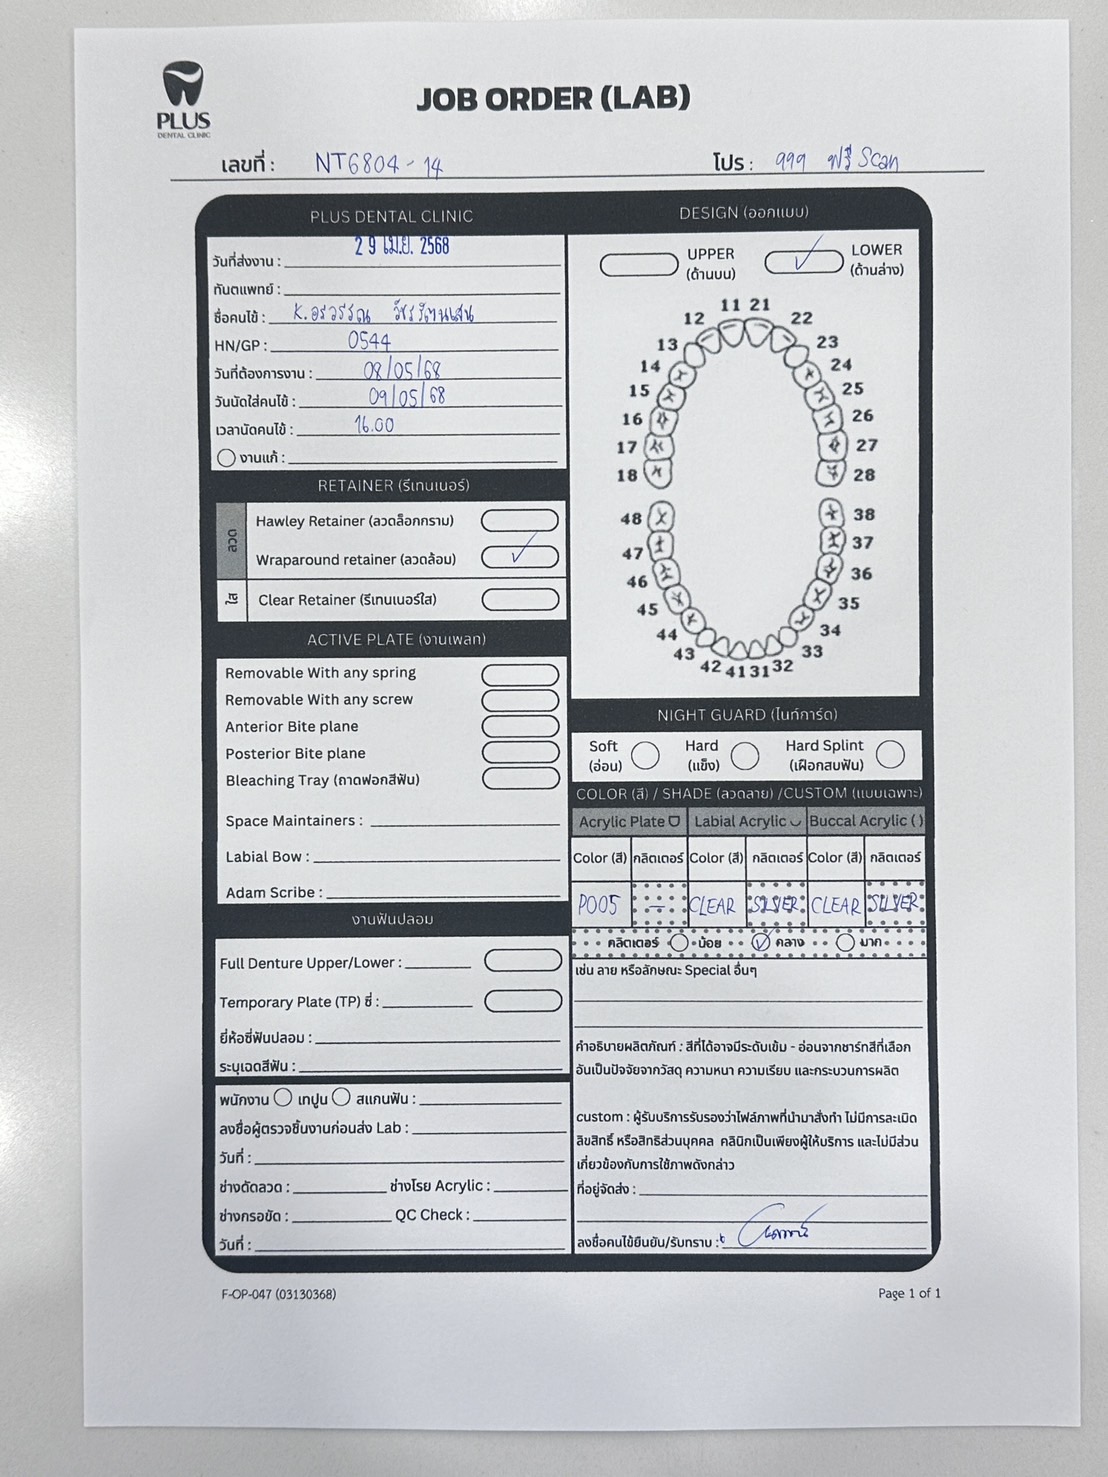 PLUS
DENTAL CLINIC
JOB ORDER (LAB)
เลขที่ : NT6804-14
โปร : 999 ฟรี Scan
PLUS DENTAL CLINIC
วันที่ส่งงาน : 29 เม.ย. 2568
ทันตแพทย์ :
ชื่อคนไข้ : K.อรวรรณ วัชรรัตนเสน
HN/GP : 0544
วันที่ต้องการงาน : 08/05/68
วันนัดใส่คนไข้ : 09/05/68
เวลานัดคนไข้ : 16.00
งานแก้ :
RETAINER (รีเทนเนอร์)
ลวด
Hawley Retainer (ลวดล็อกกราม)
Wraparound retainer (ลวดล้อม) ✓
ใส
Clear Retainer (รีเทนเนอร์ใส)
ACTIVE PLATE (งานเพลท)
Removable With any spring
Removable With any screw
Anterior Bite plane
Posterior Bite plane
Bleaching Tray (ถาดฟอกสีฟัน)
Space Maintainers :
Labial Bow :
Adam Scribe :
งานฟันปลอม
Full Denture Upper/Lower :
Temporary Plate (TP) ซี่ :
ยี่ห้อซี่ฟันปลอม :
ระบุเฉดสีฟัน :
พนักงาน เทปูน สแกนฟัน :
ลงชื่อผู้ตรวจชิ้นงานก่อนส่ง Lab :
วันที่ :
ช่างดัดลวด : ช่างโรย Acrylic :
ช่างกรอขัด : QC Check :
วันที่ :
DESIGN (ออกแบบ)
UPPER (ด้านบน)
✓ LOWER (ด้านล่าง)
11 21
12 22
13 23
14 24
15 25
16 26
17 27
18 28
48 38
47 37
46 36
45 35
44 34
43 33
42 41 31 32
NIGHT GUARD (ไนท์การ์ด)
Soft (อ่อน)
Hard (แข็ง)
Hard Splint (เฝือกสบฟัน)
COLOR (สี) / SHADE (ลวดลาย) /CUSTOM (แบบเฉพาะ)
Acrylic Plate Labial Acrylic Buccal Acrylic ( )
Color (สี) กลิตเตอร์ Color (สี) กลิตเตอร์ Color (สี) กลิตเตอร์
P005 — CLEAR SILVER CLEAR SILVER
กลิตเตอร์ น้อย ✓ กลาง มาก
เช่น ลาย หรือลักษณะ Special อื่นๆ
คำอธิบายผลิตภัณฑ์ : สีที่ได้อาจมีระดับเข้ม - อ่อนจากชาร์ทสีที่เลือก
อันเป็นปัจจัยจากวัสดุ ความหนา ความเรียบ และกระบวนการผลิต
custom : ผู้รับบริการรับรองว่าไฟล์ภาพที่นำมาสั่งทำ ไม่มีการละเมิด
ลิขสิทธิ์ หรือสิทธิส่วนบุคคล คลินิกเป็นเพียงผู้ให้บริการ และไม่มีส่วน
เกี่ยวข้องกับการใช้ภาพดังกล่าว
ที่อยู่จัดส่ง :
ลงชื่อคนไข้ยืนยัน/รับทราบ :
F-OP-047 (03130368)
Page 1 of 1